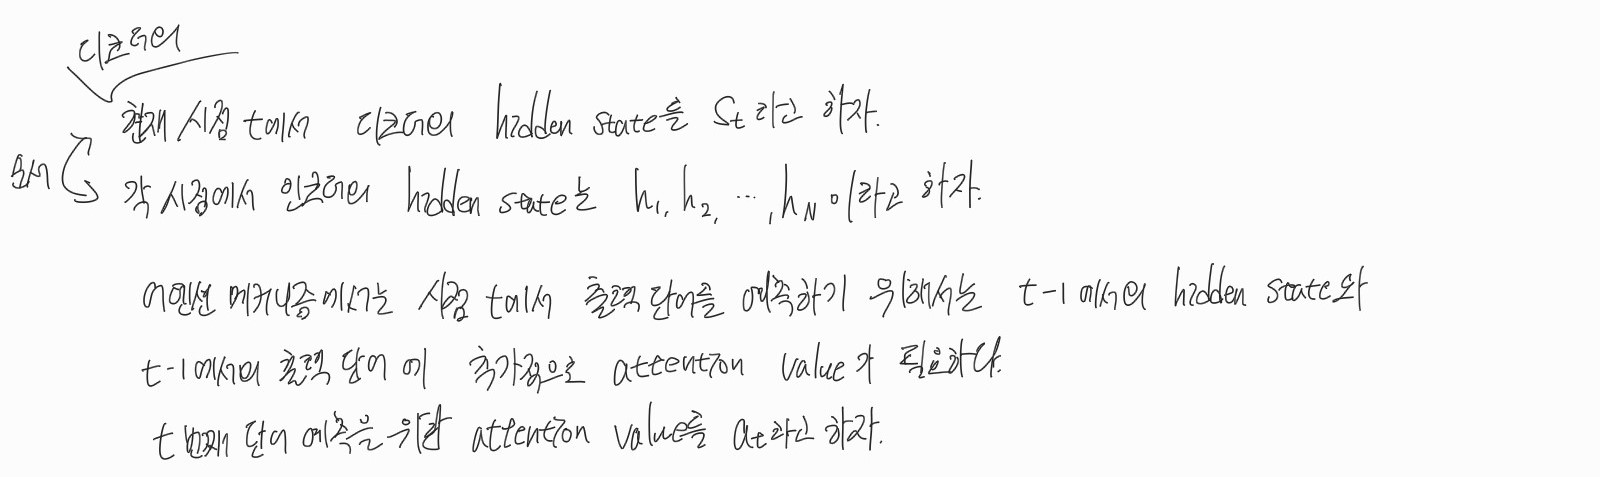 디코더의
현재 시점 t에서 디코더의 hidden state를 St 라고 하자.
순서
각 시점에서 인코더의 hidden state는 h1, h2, ..., hN 이라고 하자.
어텐션 메커니즘에서는 시점 t에서 출력 단어를 예측하기 위해서는 t-1에서의 hidden state와
t-1에서의 출력 단어에 추가적으로 attention value가 필요하다.
t 번째 단어 예측을 위한 attention value를 at라고 하자.